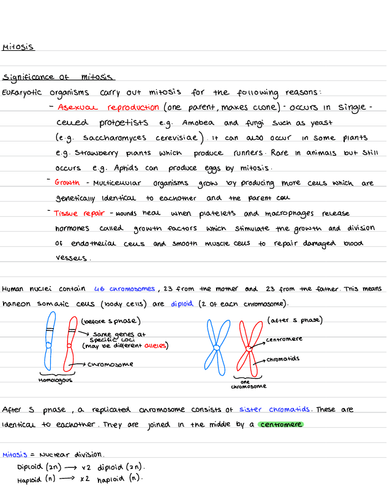 Mitosis
Significance of mitosis
Eukaryotic organisms carry out mitosis for the following reasons:
- Asexual reproduction (one parent, makes clone) - occurs in single-
celled protoctists e.g. Amobea and fungi such as yeast
(e.g. Saccharomyces cerevisiae). It can also occur in some plants
e.g. Strawberry plants which produce runners. Rare in animals but still
occurs e.g. Aphids can produce eggs by mitosis.
- Growth - Multicellular organisms grow by producing more cells which are
genetically identical to eachother and the parent cell
- Tissue repair - wounds heal when platelets and macrophages release
hormones called growth factors which stimulate the growth and division
of endothelial cells and smooth muscle cells to repair damaged blood
vessels.
Human nuclei contain 46 chromosomes, 23 from the mother and 23 from the father. This means
somatic cells (body cells) are diploid (2 of each chromosome).
(before S phase)
same genes at
specific loci
(may be different alleles)
chromosome
homologous
(after S phase)
centromere
chromatids
one
chromosome
After S phase, a replicated chromosome consists of sister chromatids. These are
identical to eachother. They are joined in the middle by a centromere
Mitosis = Nuclear division.
Diploid (2n) → x2 diploid (2n).
Haploid (n) → x2 haploid (n).